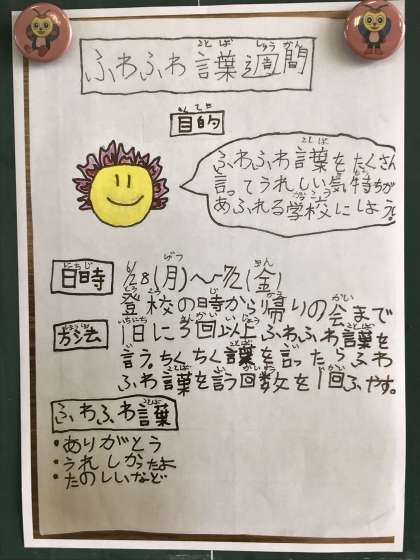 ふわふわ言葉週間
目的
ふわふわ言葉をたくさん
言ってうれしい気持ちが
あふれる学校にしよう。
日時
6/28(月)〜7/2(金)
登校の時から帰りの会まで
方法
1日に3回以上ふわふわ言葉を
言う。ちくちく言葉を言ったらふわ
ふわ言葉を言う回数を1回ふやす。
ふわふわ言葉
・ありがとう
・うれしかったよ
・たのしいなど